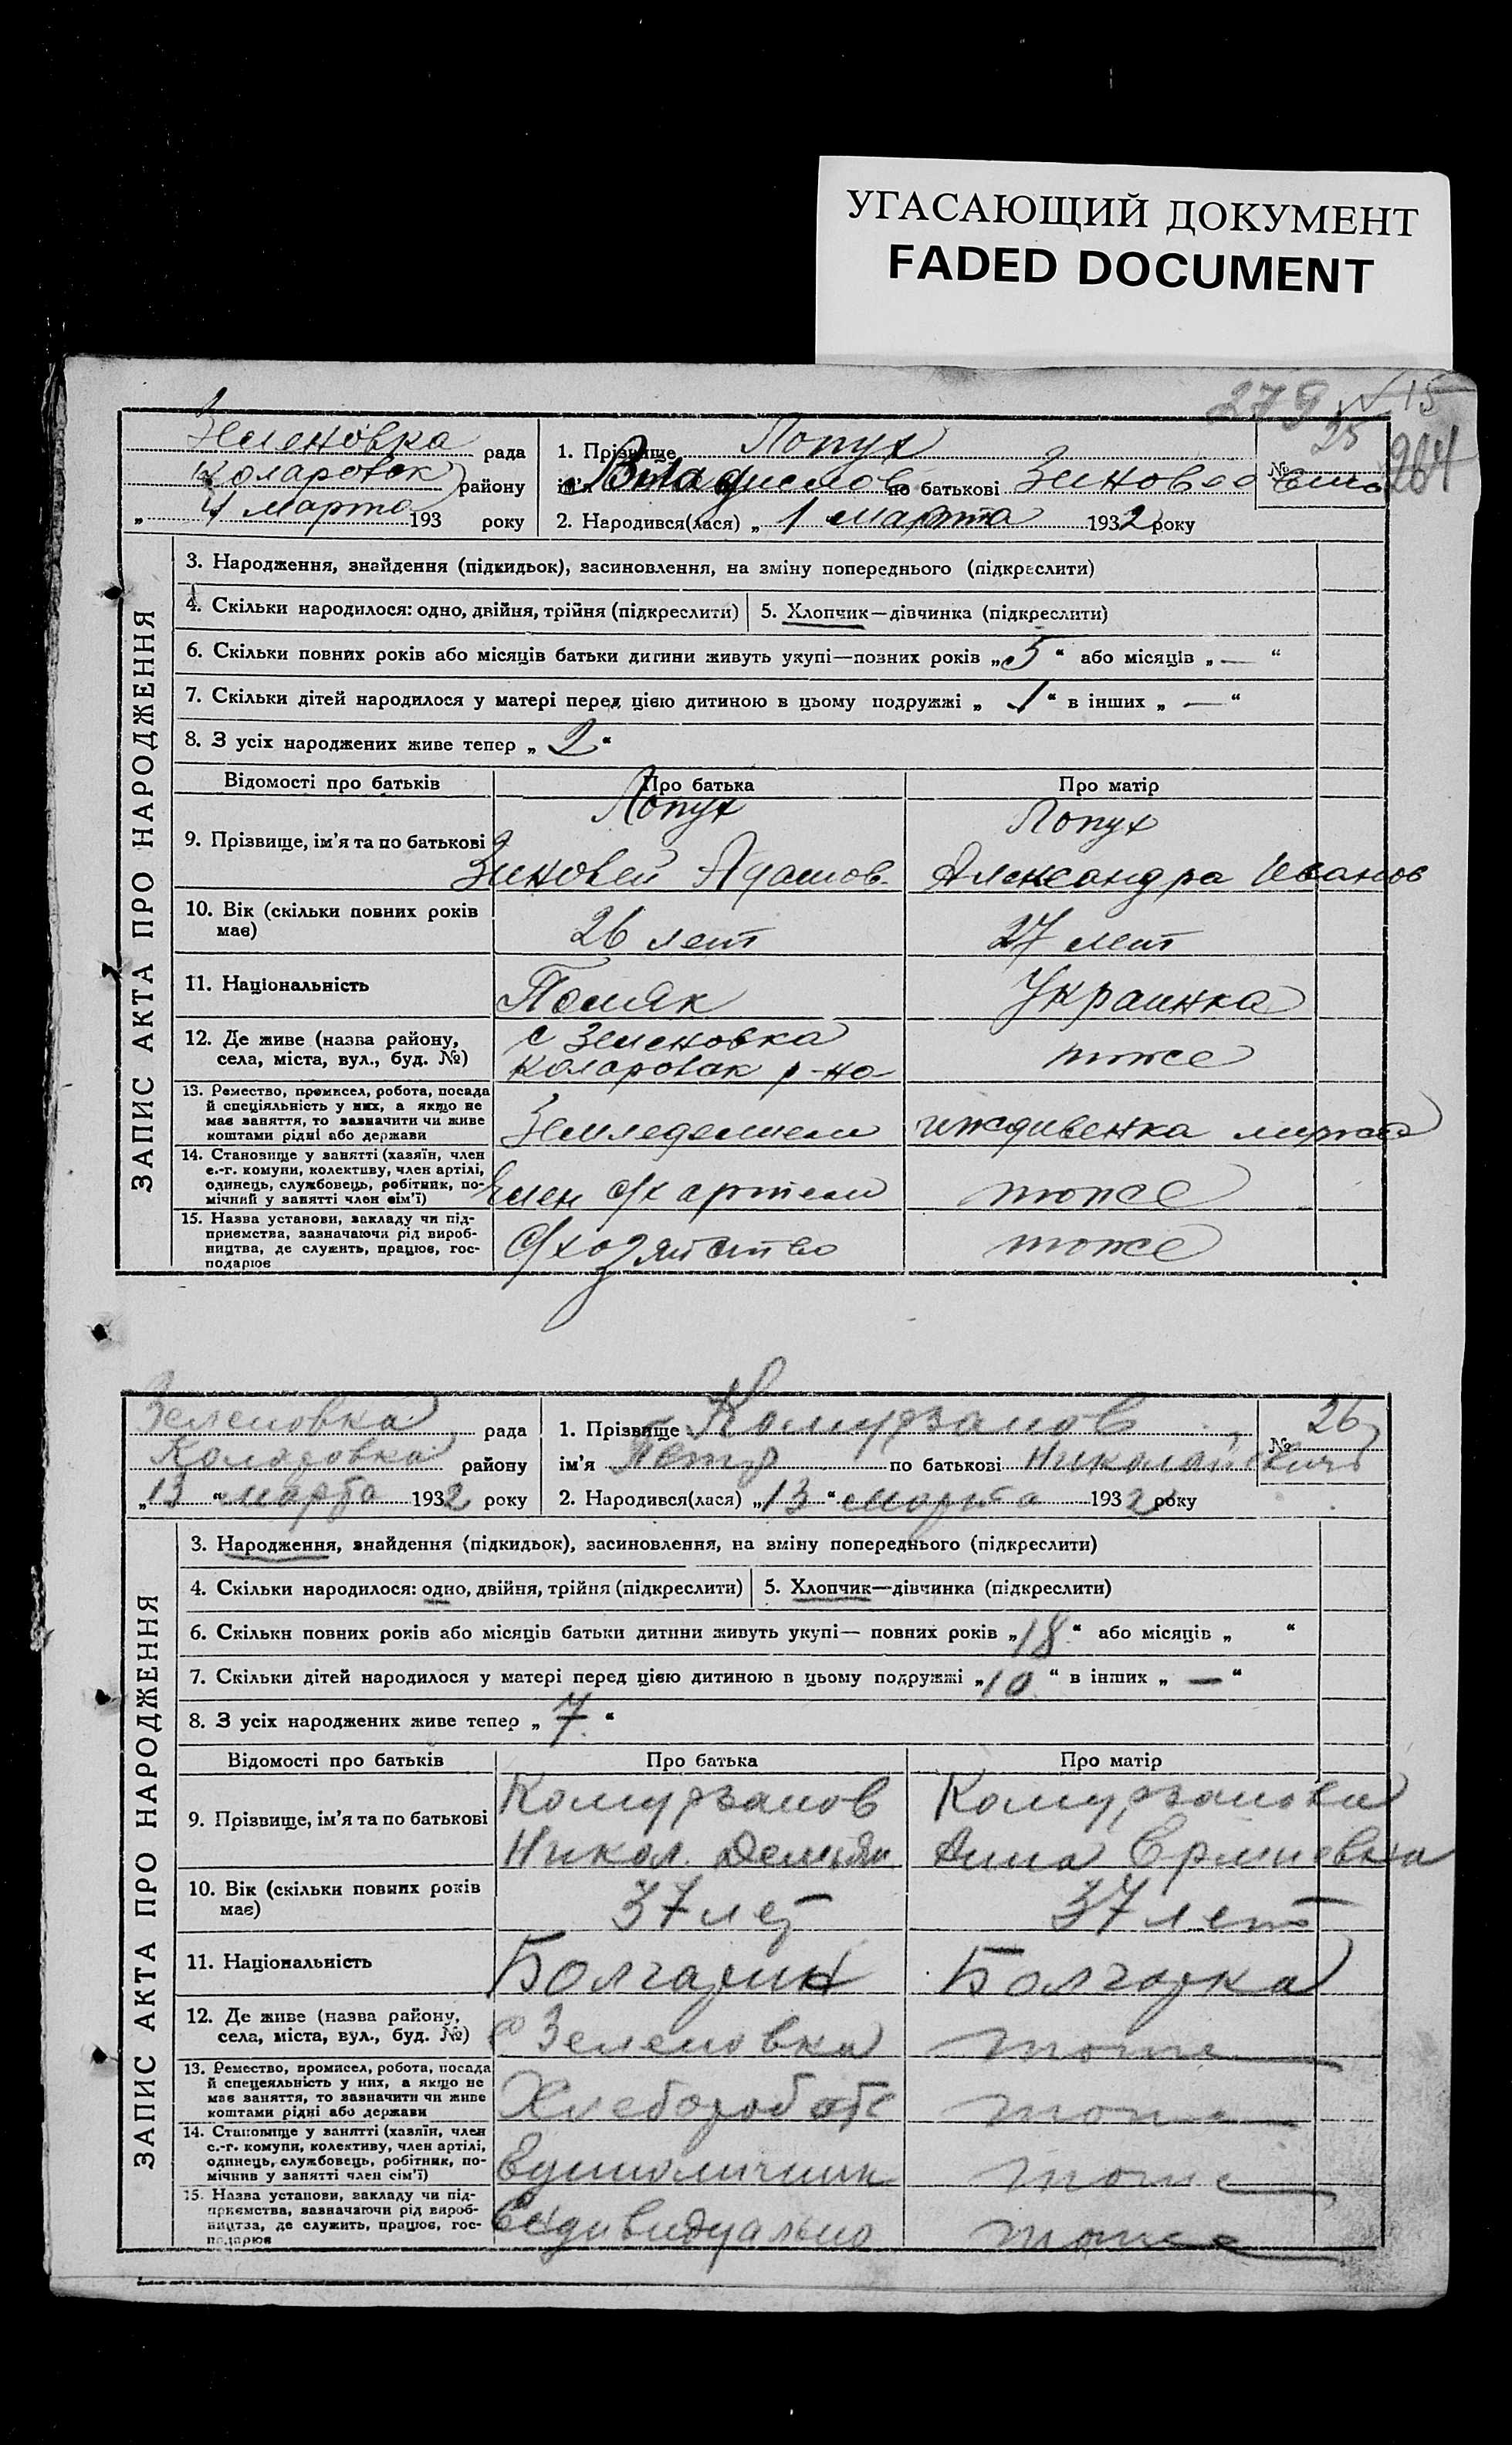 УГАСАЮЩИЙ ДОКУМЕНТ
FADED DOCUMENT
279 15
25
264
Зеленовка рада
Коларовск району
„ 4 марта 193 року
1. Прізвище Лопух
ім'я Владислов по батькові Зиновеевичь
№
2. Народився(лася) „ 1 марта 1932 року
ЗАПИС АКТА ПРО НАРОДЖЕННЯ
3. Народження, знайдення (підкидьок), засиновлення, на зміну попереднього (підкреслити)
4. Скільки народилося: одно, двійня, трійня (підкреслити) 5. Хлопчик—дівчинка (підкреслити)
6. Скільки повних років або місяців батьки дитини живуть укупі—повних років „ 5 “ або місяців „ — “
7. Скільки дітей народилося у матері перед цією дитиною в цьому подружжі „ 1 “ в інших „ — “
8. З усіх народжених живе тепер „ 2 “
Відомості про батьків Про батька Про матір
9. Прізвище, ім'я та по батькові
Лопух
Зиновей Адамов.
Лопух
Александра Иванов
10. Вік (скільки повних років має) 26 лет 27 лет
11. Національність Поляк Украинка
12. Де живе (назва району, села, міста, вул., буд. №)
с Зеленовка
Коларовск р-на
тоже
13. Ремество, промисел, робота, посада
й спеціяльність у них, а якщо не
має заняття, то зазначити чи живе
коштами рідні або держави
Земледелием иждивенка мужа
14. Становище у занятті (хазяїн, член
с.-г. комуни, колективу, член артілі,
одинець, службовець, робітник, по-
мічний у занятті член сім'ї)
Член с/х артели тоже
15. Назва установи, закладу чи під-
приємства, зазначаючи рід вироб-
ництва, де служить, працює, гос-
подарює
С/хозяйство тоже
Зеленовка рада
Коларовка району
„ 13 “ марта 1932 року
1. Прізвище Комурзанов
ім'я Петр по батькові Николайевичь
№ 26
2. Народився(лася) „ 13 “ марта 1932 року
ЗАПИС АКТА ПРО НАРОДЖЕННЯ
3. Народження, знайдення (підкидьок), засиновлення, на зміну попереднього (підкреслити)
4. Скільки народилося: одно, двійня, трійня (підкреслити) 5. Хлопчик—дівчинка (підкреслити)
6. Скільки повних років або місяців батьки дитини живуть укупі— повних років „ 18 “ або місяців „ “
7. Скільки дітей народилося у матері перед цією дитиною в цьому подружжі „ 10 “ в інших „ — “
8. З усіх народжених живе тепер „ 7 “
Відомості про батьків Про батька Про матір
9. Прізвище, ім'я та по батькові
Комурзанов
Никол. Демьян
Комурзанова
Анна
10. Вік (скільки повних років має) 37 лет 37 лет
11. Національність Болгарин Болгарка
12. Де живе (назва району, села, міста, вул., буд. №)
с Зеленовка тоже
13. Ремество, промисел, робота, посада
й спецеяльність у них, а якщо не
має заняття, то зазначити чи живе
коштами рідні або держави
тоже
14. Становище у занятті (хазяїн, член
с.-г. комуни, колективу, член артілі,
одинець, службовець, робітник, по-
мічнив у занятті член сім'ї)
Единоличник тоже
15. Назва установи, закладу чи під-
приємства, зазначаючи рід вироб-
ництва, де служить, працює, гос-
подарює
тоже